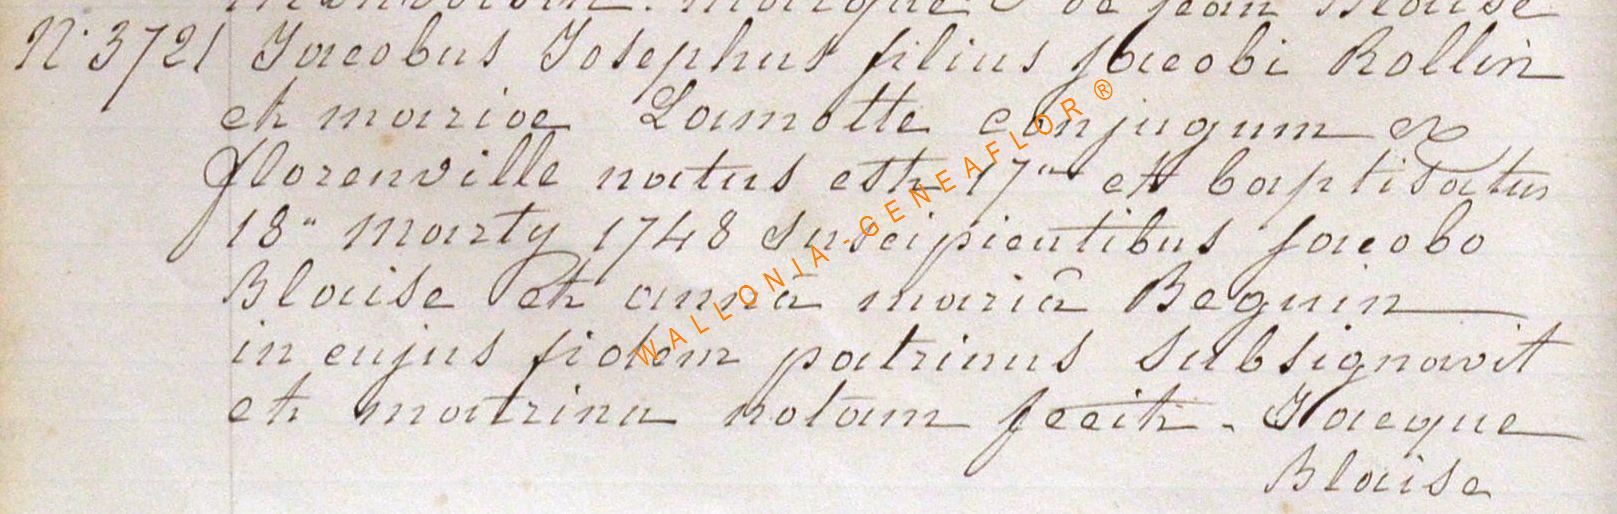 marque de jean Blaise
N° 3721 Jacobus Josephus filius jacobi Rollin
et mariae Lamotte conjugum ex
florenville natus est 17ª et baptisatus
18ª marty 1748 suscipientibus jacobo
Blaise et annâ mariâ Beguin
in cujus fidem patrinus subsignavit
et matrina notam fecit - Jacque
Blaise
WALLONIA-GENEAFLOR ®